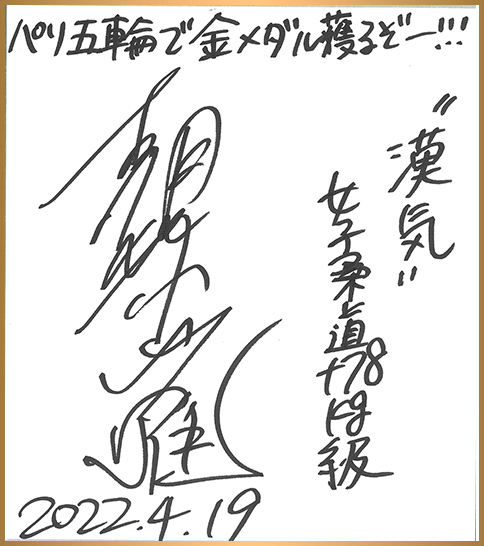 パリ五輪で金メダル獲るぞー!!!
“漢気”
女子柔道+78kg級
朝比奈沙羅
2022.4.19